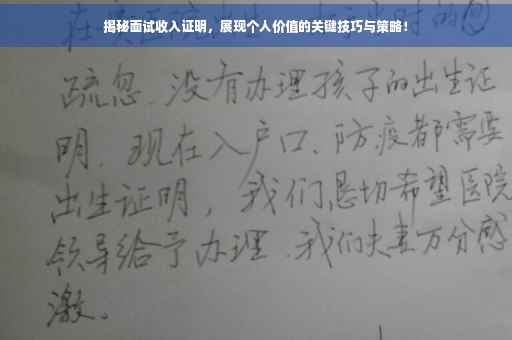 揭秘面试收入证明，展现个人价值的关键技巧与策略！
疏忽.没有办理孩子的出生证
明.现在入户口、防疫都需要
出生证明，我们恳切希望医院
领导给予办理.我们夫妻万分感
激。